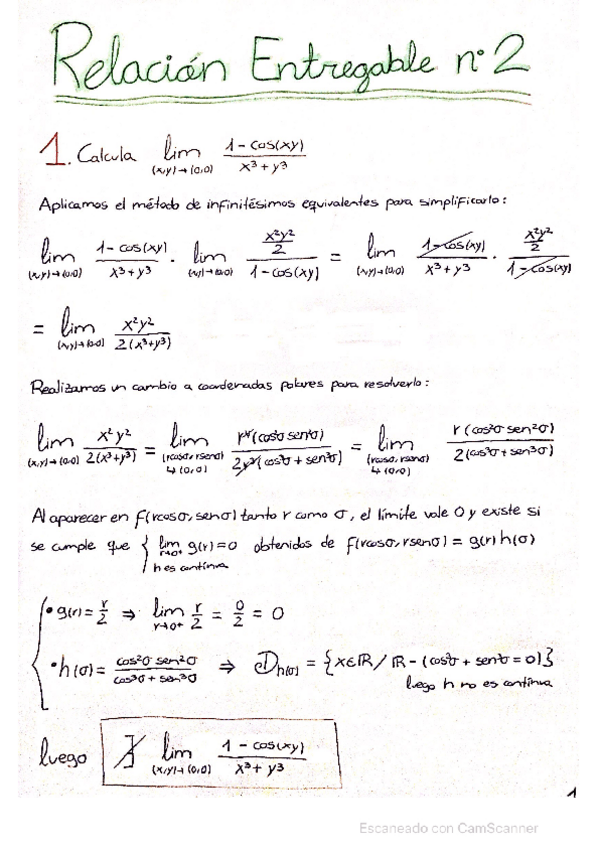 Relación Entregable nº 2
1. Calcula lim (x,y)→(0,0) 1 - cos(xy) / x³ + y³
Aplicamos el método de infinitésimos equivalentes para simplificarlo:
lim (x,y)→(0,0) 1 - cos(xy) / x³ + y³ · lim (x,y)→(0,0) x²y²/2 / 1 - cos(xy) = lim (x,y)→(0,0) 1 - cos(xy) / x³ + y³ · x²y²/2 / 1 - cos(xy)
= lim (x,y)→(0,0) x²y² / 2(x³+y³)
Realizamos un cambio a coordenadas polares para resolverlo:
lim (x,y)→(0,0) x²y² / 2(x³+y³) = lim (rcosσ, rsenσ)→(0,0) r⁴(cos²σ sen²σ) / 2r³(cos³σ + sen³σ) = lim (rcosσ, rsenσ)→(0,0) r(cos²σ sen²σ) / 2(cos³σ + sen³σ)
Al aparecer en f(rcosσ, senσ) tanto r como σ, el límite vale 0 y existe si
se cumple que { lim r→0⁺ g(r) = 0 obtenidos de f(rcosσ, rsenσ) = g(r) h(σ)
h es continua
• g(r) = r/2 ⇒ lim r→0⁺ r/2 = 0/2 = 0
• h(σ) = cos²σ sen²σ / cos³σ + sen³σ ⇒ D h(σ) = {x∈ℝ / ℝ - (cos³σ + sen³σ = 0)}
luego h no es continua
luego ∄ lim (x,y)→(0,0) 1 - cos(xy) / x³ + y³
1
Escaneado con CamScanner